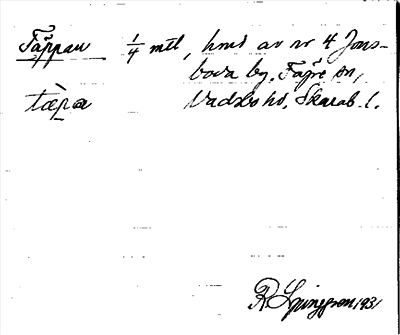 Täppan 1/4 mtl, hmd av nr 4 Jons-
boda by, Färe sn,
tæ̀pa Vadsbo hd, Skarab. l.
R Ljunggren 1931